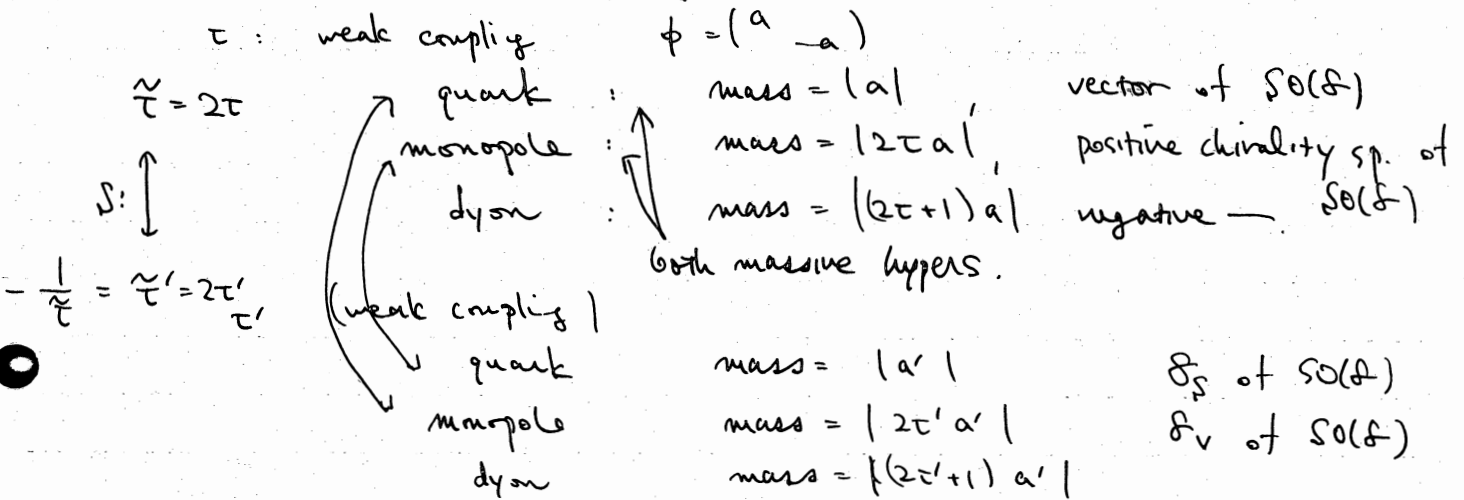 τ : weak coupling φ = ( a -a )
τ̃ = 2τ quark : mass = |a|, vector of SO(8)
monopole : mass = |2τa|, positive chirality sp. of
S: dyon : mass = |(2τ+1)a| negative — SO(8)
both massive hypers.
-1/τ̃ = τ̃' = 2τ' τ' (weak coupling)
quark mass = |a'| 8_S of SO(8)
monopole mass = |2τ'a'| 8_V of SO(8)
dyon mass = |(2τ'+1)a'|